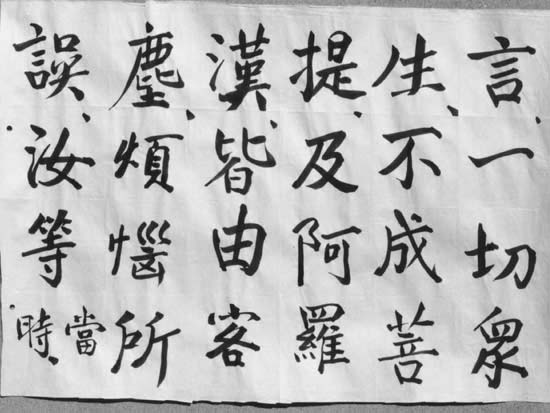 言、一切眾
生、不成菩
提、及阿羅
漢、皆由客
塵、煩惱所
誤、汝等
當
時、